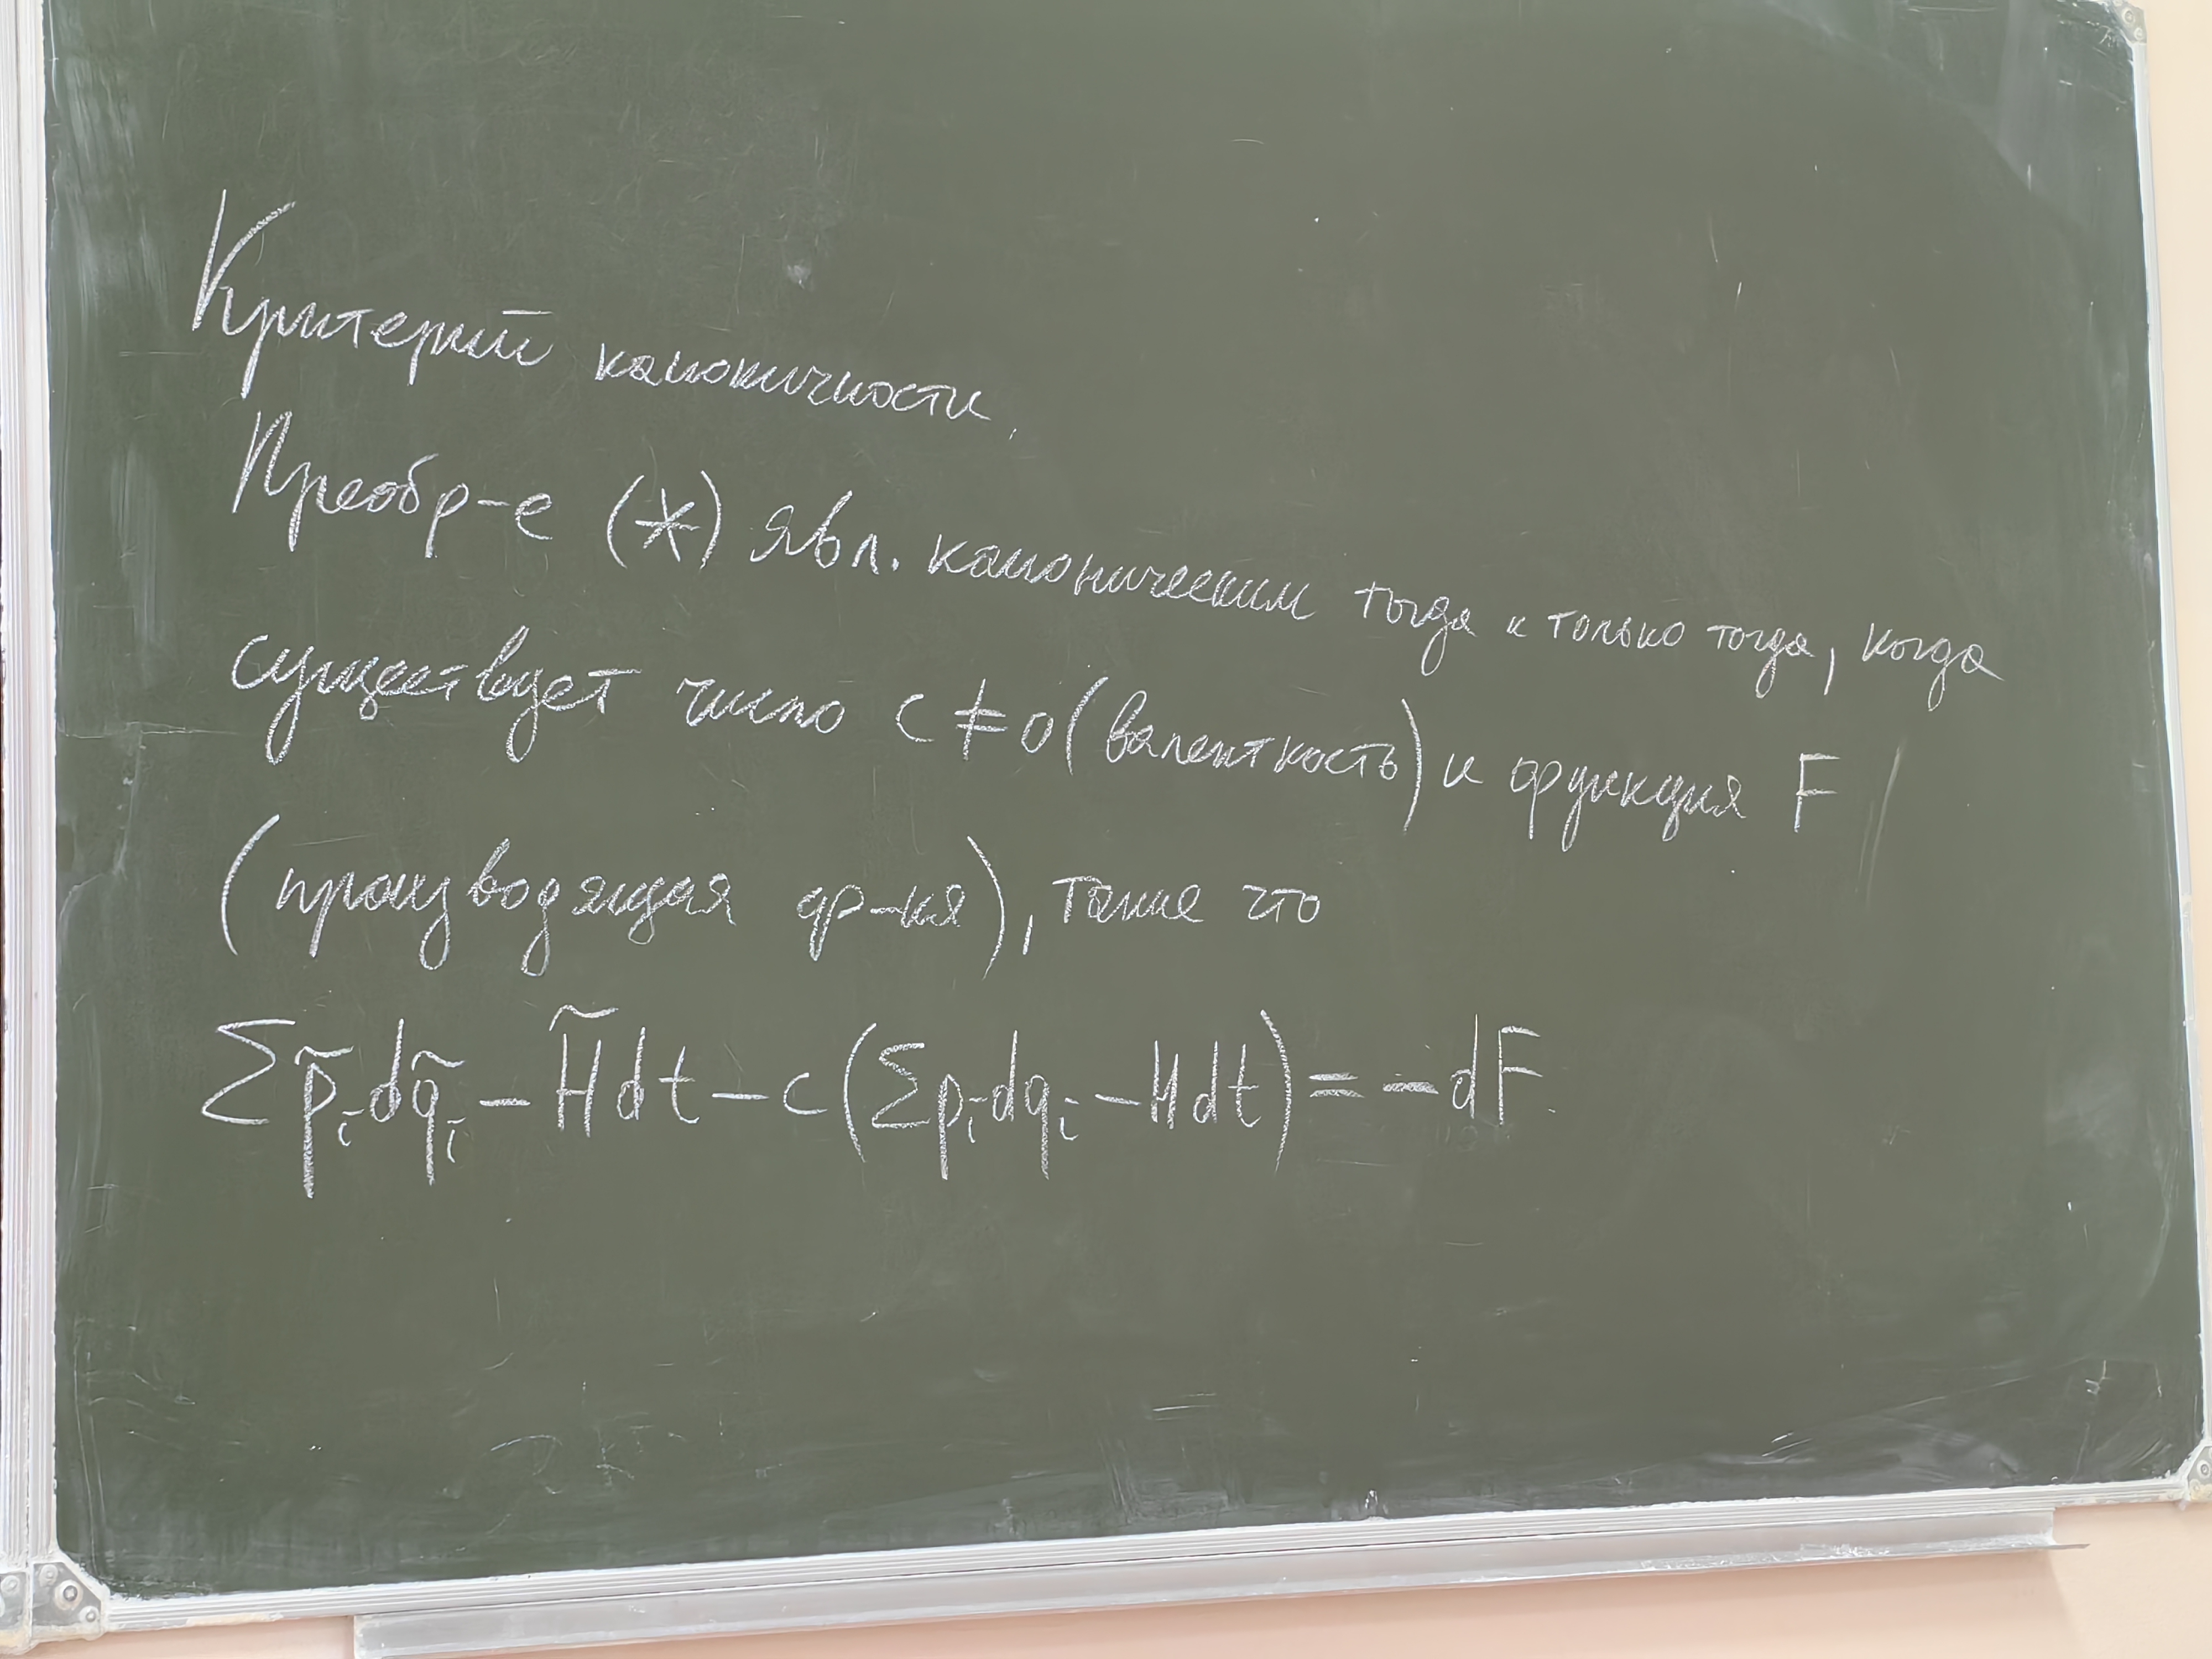 Критерий каноничности.
Преобр-е (*) явл. каноническим тогда и только тогда, когда
существует число c ≠ 0 (валентность) и функция F
(производящая ф-ия), такие что
∑ p̃ᵢ dq̃ᵢ − H̃dt − c(∑ pᵢ dqᵢ − Hdt) = −dF.